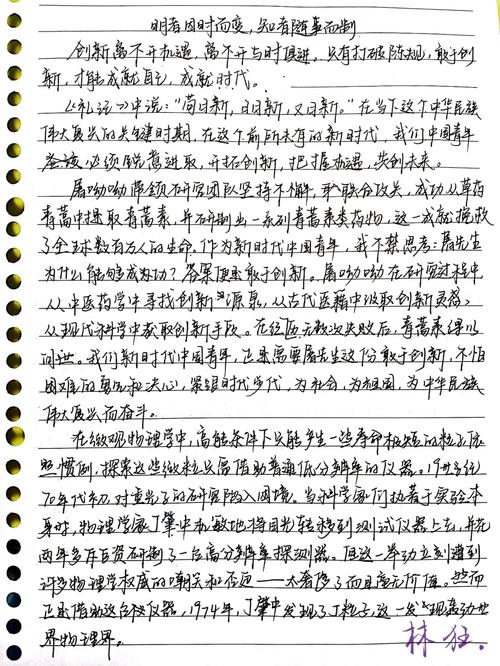 明者因时而变，知者随事而制
创新离不开机遇，离不开与时俱进。只有打破陈规，敢于创
新，才能成就自己，成就时代。
《礼记》中说："苟日新，日日新，又日新。"在当下这个中华民族
伟大复兴的关键时期，在这个前所未有的新时代，我们中国青年
必须锐意进取，开拓创新，把握机遇，共创未来。
屠呦呦率领研究团队坚持不懈，联合攻关，成功从草药
青蒿中提取青蒿素，并研制出一系列青蒿素类药物，这一成就挽救
了全球数百万人的生命。作为新时代中国青年，我不禁思考：屠先生
为什么能够成功？答案便是敢于创新。屠呦呦在研究过程中，
从中医药学中寻找创新源泉，从古代医籍中汲取创新灵感，
从现代科学中获取创新手段。在经历无数次失败后，青蒿素得以
问世。我们新时代中国青年，正需要屠先生这份敢于创新，不怕
困难的勇气和决心，紧跟时代步伐，为社会，为祖国，为中华民族
伟大复兴而奋斗。
在微观物理学中，高能条件下只能产生一些寿命极短的粒子。依
照惯例，探索这些微粒只需借助普通低分辨率的仪器。19世纪
70年代初，对重光子的研究陷入困境，当科学家们执着于实验本
身时，物理学家丁肇中机敏地将目光转移到测试仪器上去，并花
两年多斥巨资研制了一台高分辨率探测器。但这一举动立刻遭到
许多物理学权威的嘲笑和否定——太奢侈了而且毫无价值。然而
正是借助这台仪器，1974年，丁肇中发现了J粒子，这一发现轰动世
界物理界。
林狂.